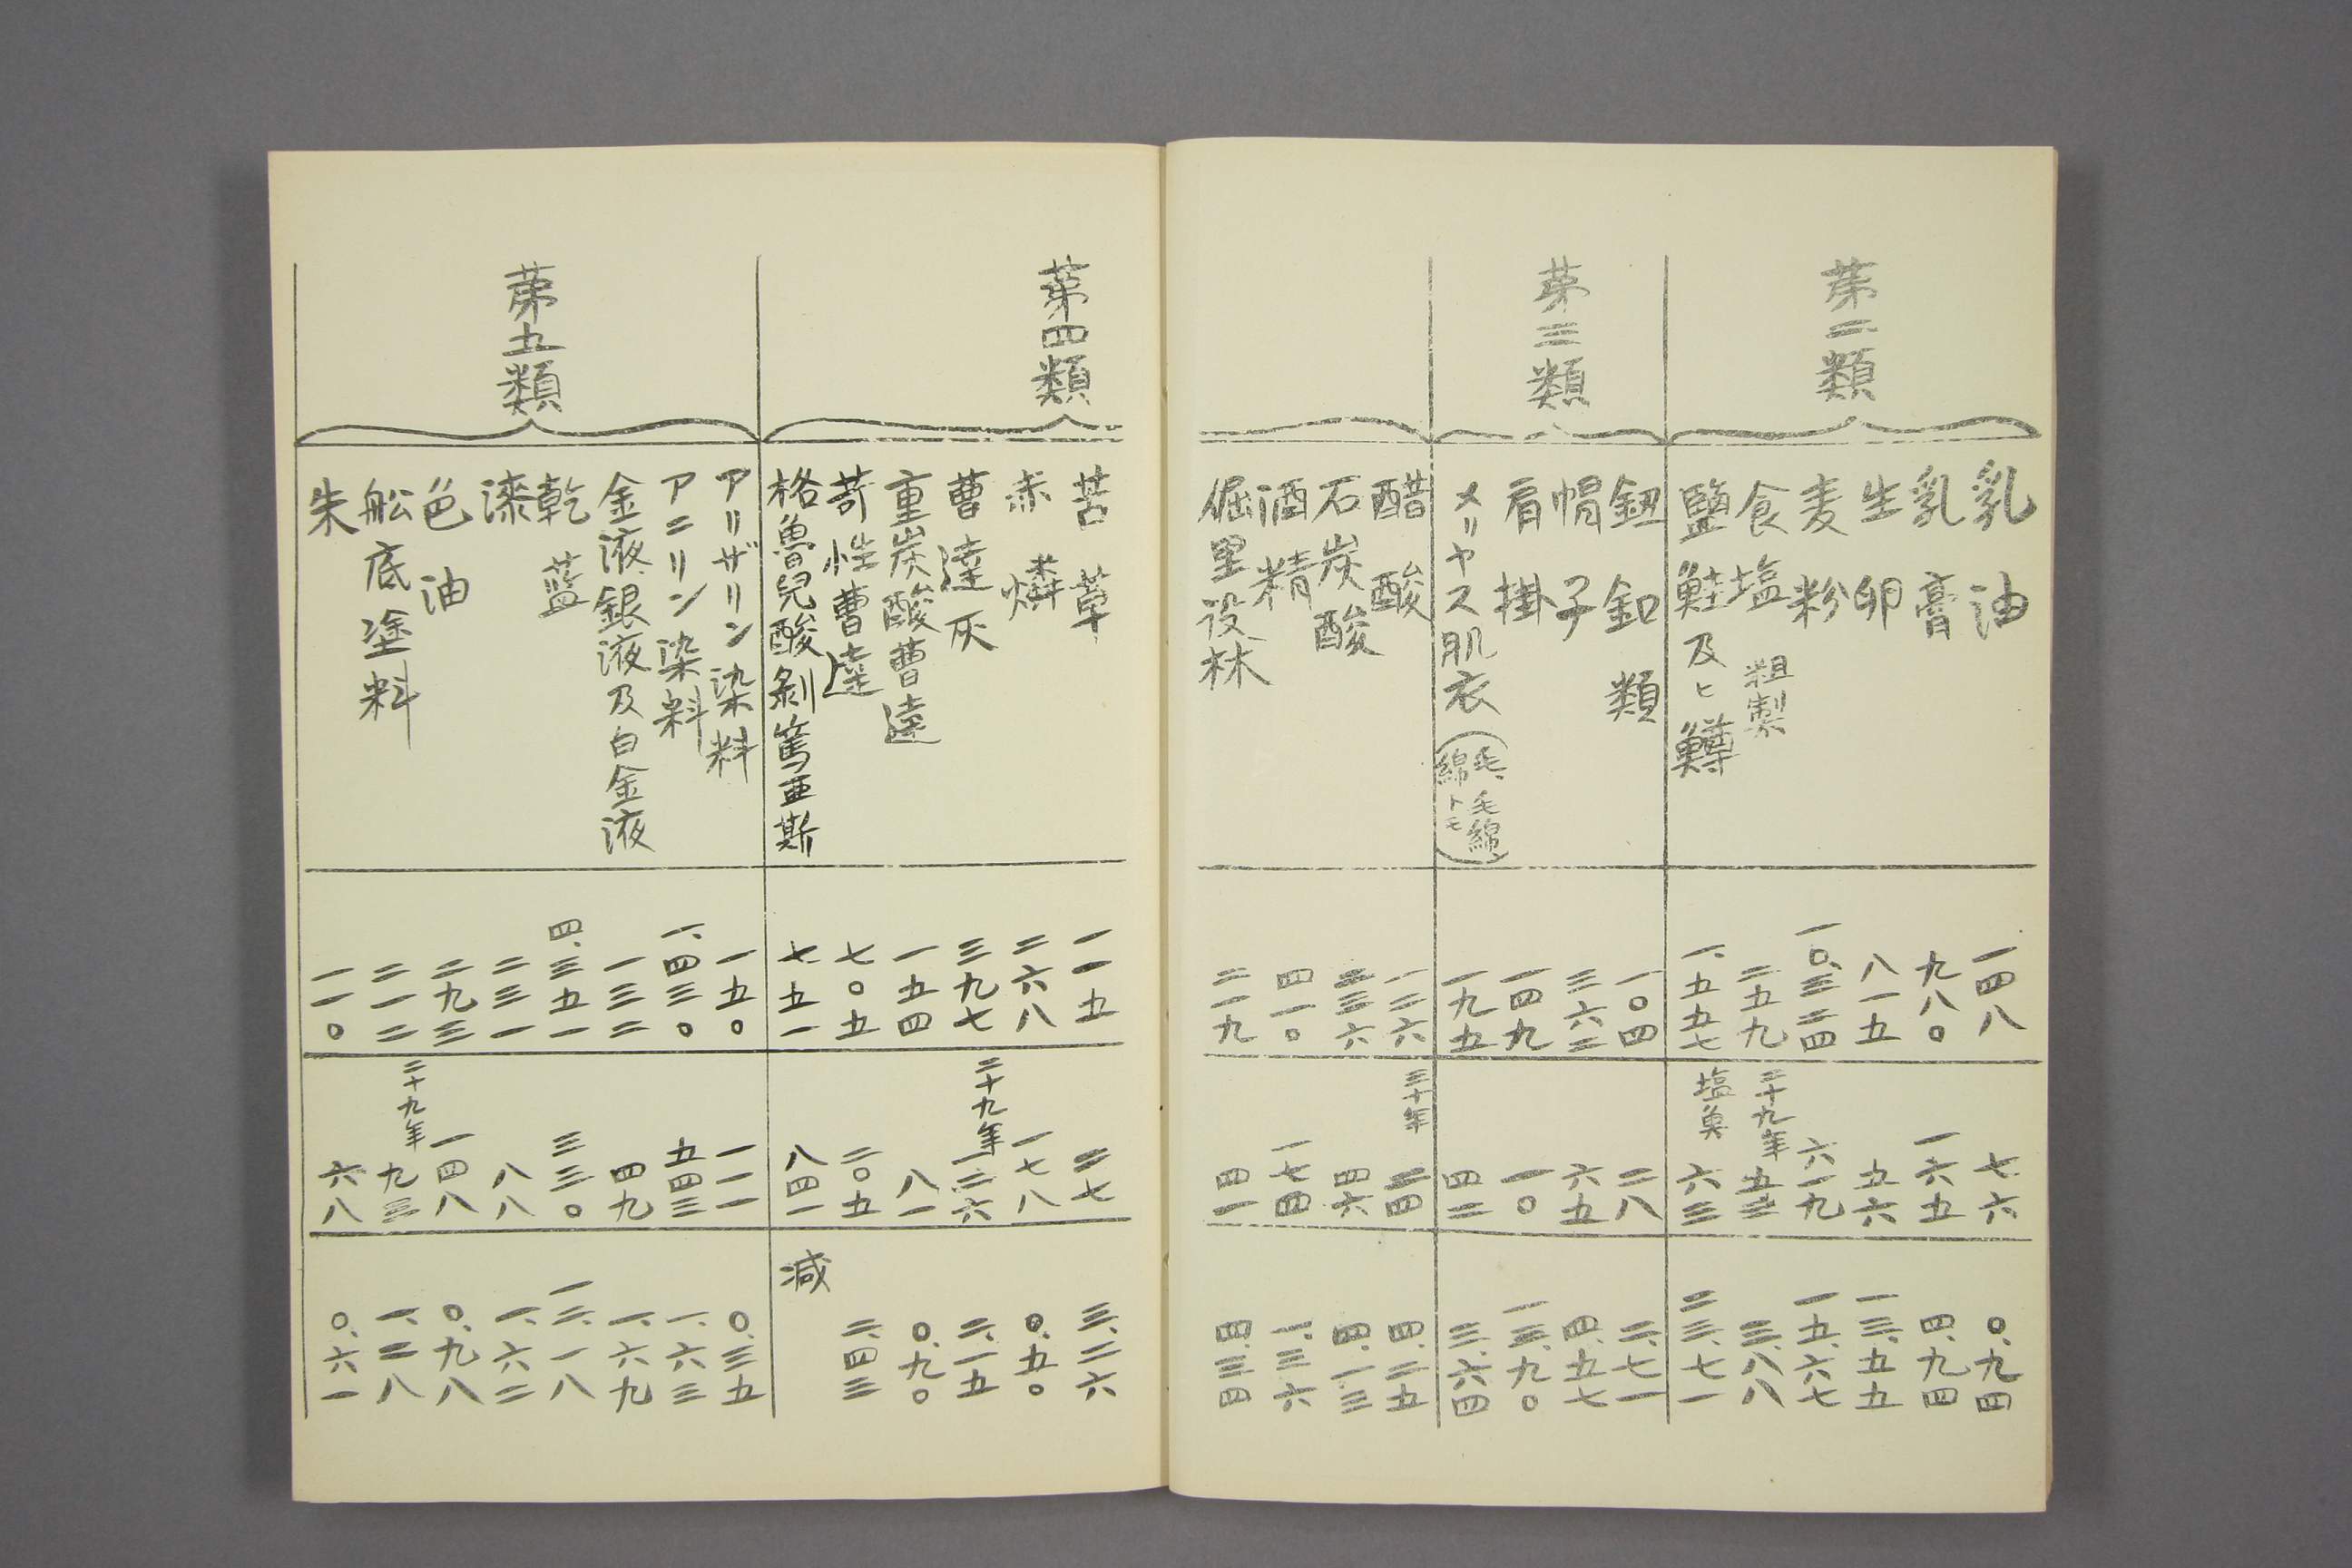 第二類
乳油 一四八 七六 〇、九四
乳膏 九八〇 一六五 四、九四
生卵 八一五 五六 一三、五五
麦粉 一〇、三二四 六一九 一五、六七
食塩 粗製 二五九 二十九年 五三 三、八八
鹽鮭及ヒ鱒 一、五五七 塩魚 六三 二三、七一
第三類
鈕釦類 一〇四 二八 二、七一
帽子 三六二 六五 四、五七
肩掛 一四九 一〇 一三、九〇
メリヤス肌衣(毛、毛綿、綿トモ) 一九五 四二 三、六四
醋酸 一二六 三十年 二四 四、二五
石炭酸 二三六 四六 四、一三
酒精 四一〇 一七四 一、三六
倔里設林 二一九 四一 四、三四
第四類
苦草 一一五 二七 三、二六
赤燐 二六八 一七八 〇、五〇
曹達灰 三九七 二十九年 一二六 二、一五
重炭酸曹達 一五四 八一 〇、九〇
苛性曹達 七〇五 二〇五 二、四三
格魯兒酸剝篤亜斯 七五一 八四一 減
第五類
アリザリン染料 一五〇 一一一 〇、三五
アニリン染料 一、四三〇 五四三 一、六三
金液、銀液及白金液 一三二 四九 一、六九
乾藍 四、三五一 三三〇 一二、一八
漆 二三一 八八 一、六二
色油 二九三 一四八 〇、九八
舩底塗料 二一二 二十九年 九三 一、二八
朱 一一〇 六八 〇、六一